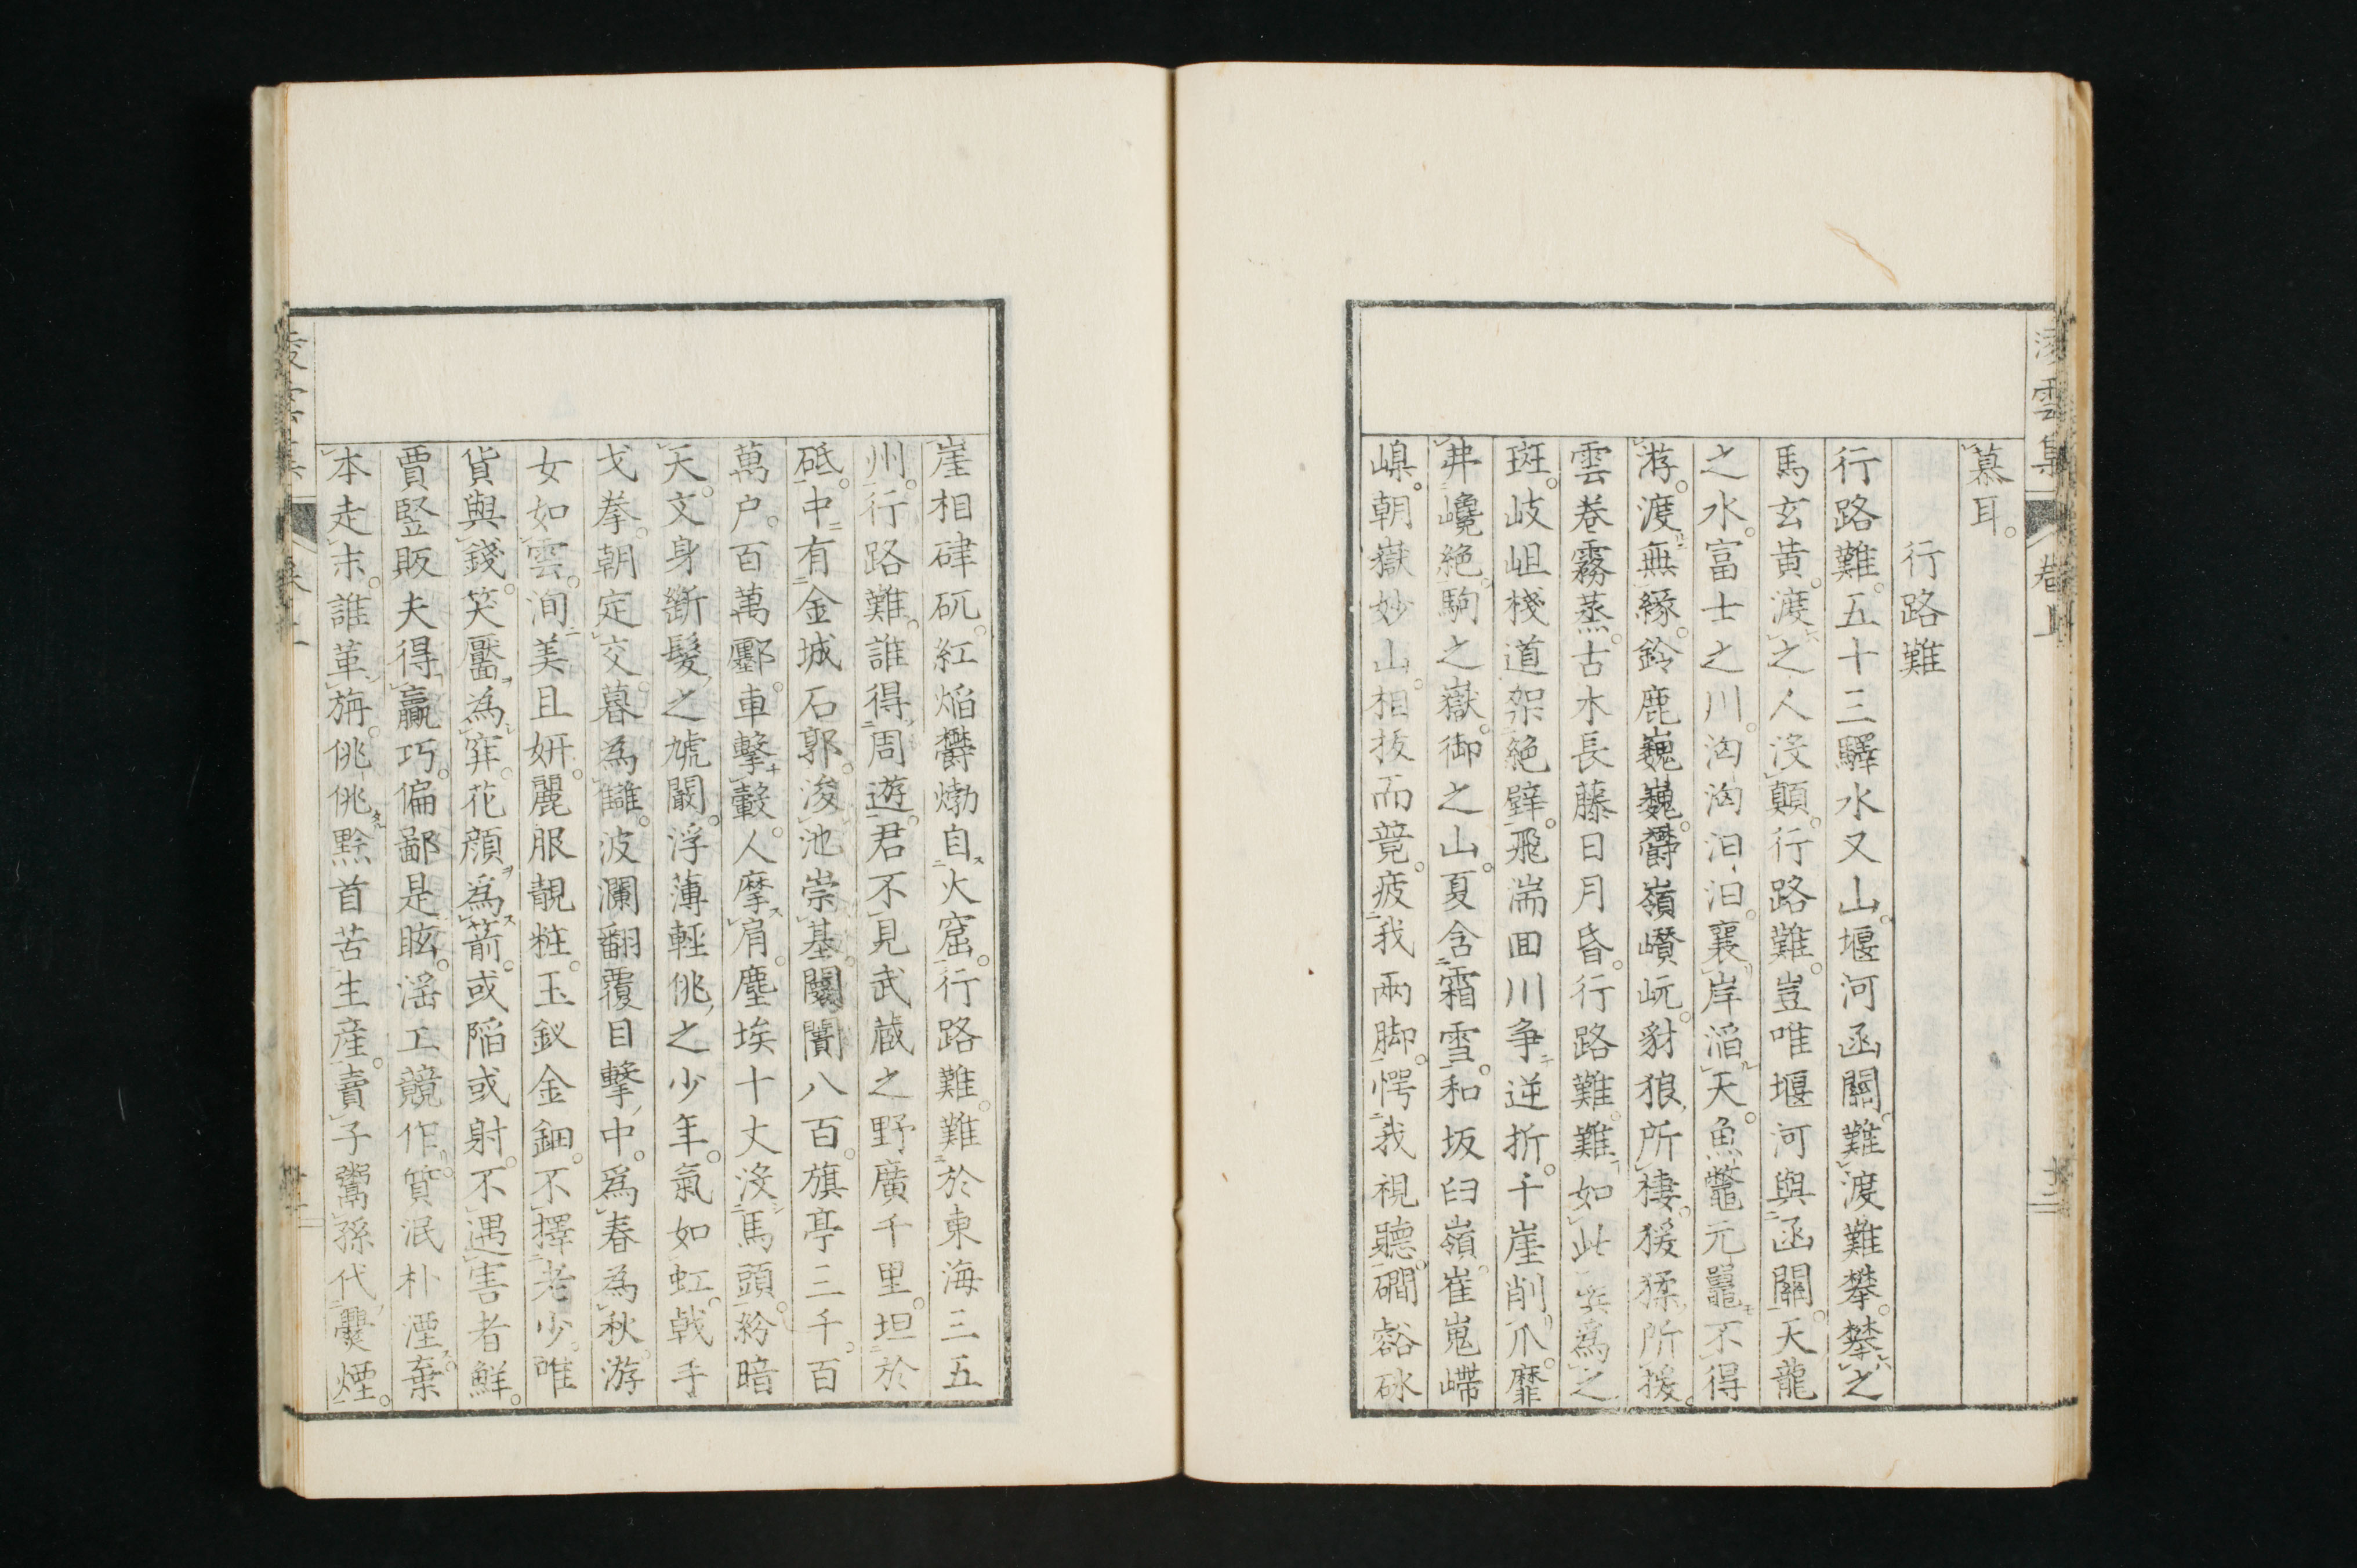 慕耳。
行路難
行路難。五十三驛水又山。堰河函關。難渡難攀。攀之
馬玄黄。渡之人没顛。行路難。豈唯堰河與函關。天龍
之水。富士之川。洶洶汨汨。襄岸滔天。魚鼈元鼉不得
游。渡無緣。鈴鹿巍巍。欝嶺巑岏。豺狼所棲。猨猱所援。
雲卷霧蒸。古木長藤日月昏。行路難。難如此 爲之
斑。岐岨棧道架絕壁。飛湍回川争逆折。千崖削爪。靡
井巉絕。駒之嶽。御之山。夏含霜雪。和坂臼嶺。崔嵬嵽
嵲。朝嶽妙山。相拔而競。疲我兩脚。愕我視聽。磵谿砅
崖相硉矹。紅焔欝㶿自火窟。行路難。難於東海三五
州。行路難。誰得周遊。君不見武蔵之野廣千里。坦於
砥。中有金城石郭。浚池崇基。闤闠八百。旗亭三千。百
萬户。百萬酈。車擊轂。人摩肩。塵埃十丈没馬頭。紛暗
天。文身斷髮之虓闞。浮薄輕佻之少年。氣如虹。戟手
戈拳。朝定交。暮為讎。波瀾翻覆目擊中。爲春為秋。游
女如雲。洵美且妍。麗服靚粧。玉釵金鈿。不擇老少。唯
貨與錢。笑靨為穽。花顔爲箭。或陷或射。不遇害者鮮。
賈豎販夫得贏巧。偏鄙是眩。滛工競作。質泯朴湮。棄
本走末。誰革旃。佻佻黔首苦生産。賣子鬻孫代爨煙。
淩雲集
卷上